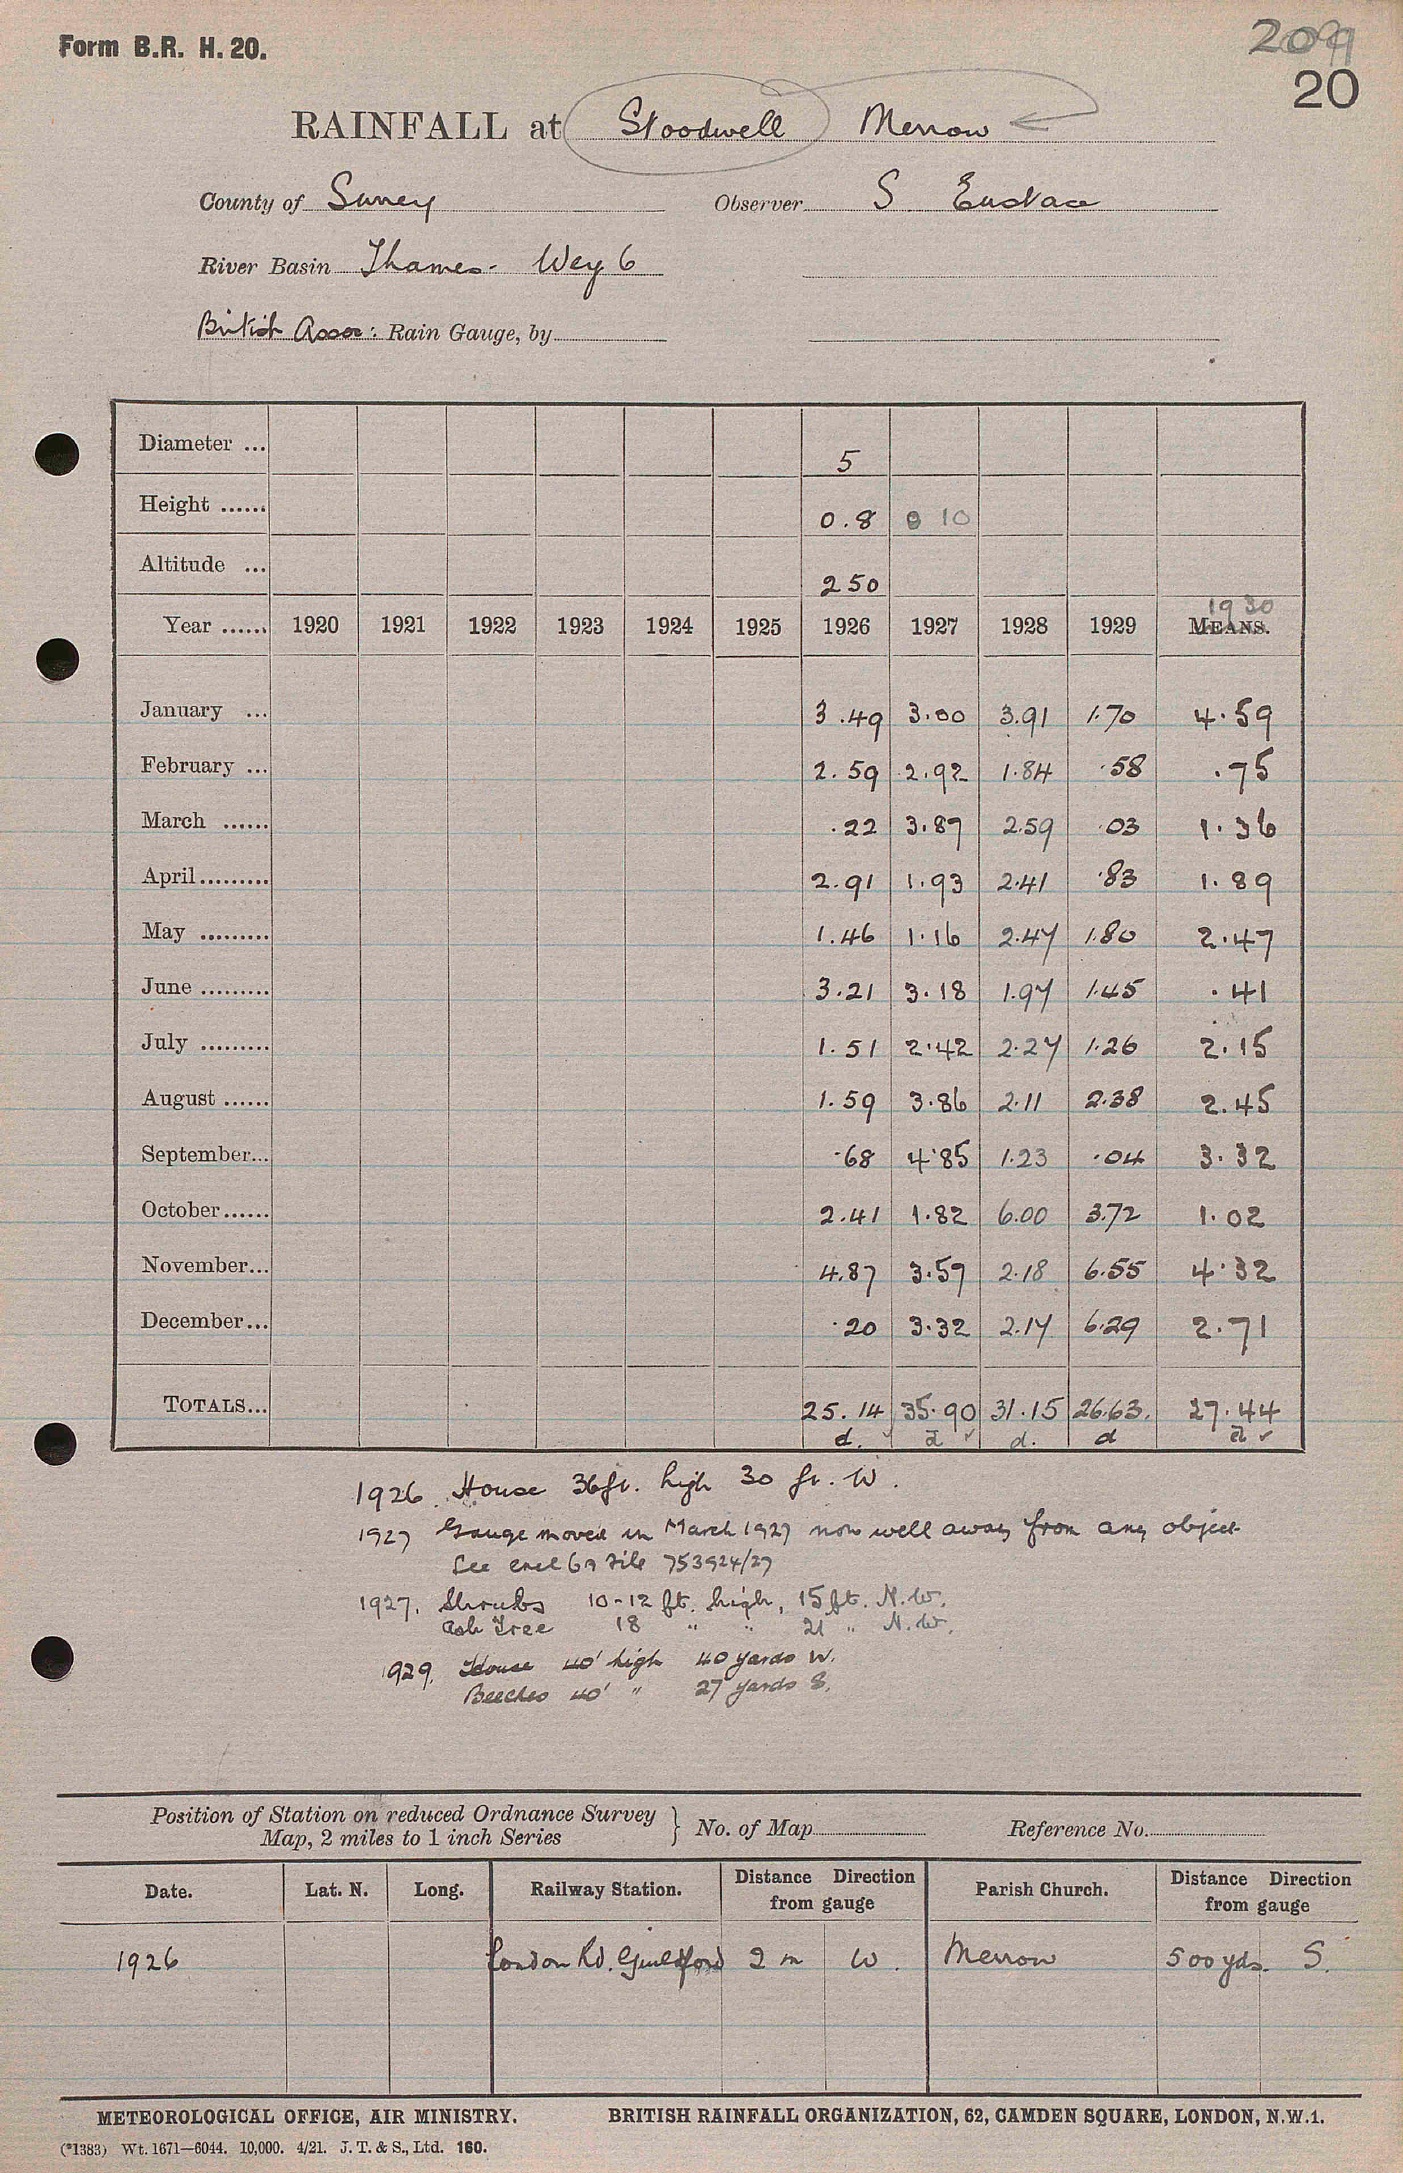 Form B.R. H. 20.
2099
20
RAINFALL at Stoodwell Merrow
County of Surrey Observer S Eustace
River Basin Thames - Wey 6
British Assoc: Rain Gauge, by
Diameter ... 5
Height ...... 0.8 0 10
Altitude ... 250
1930
Year ...... 1920 1921 1922 1923 1924 1925 1926 1927 1928 1929 MEANS.
January ... 3.49 3.00 3.91 1.70 4.59
February ... 2.59 2.92 1.84 .58 .75
March ...... .22 3.87 2.59 .03 1.36
April......... 2.91 1.93 2.41 .83 1.89
May ......... 1.46 1.16 2.47 1.80 2.47
June ......... 3.21 3.18 1.97 1.45 .41
July ......... 1.51 2.42 2.27 1.26 2.15
August ...... 1.59 3.86 2.11 2.38 2.45
September... .68 4.85 1.23 .04 3.32
October...... 2.41 1.82 6.00 3.72 1.02
November... 4.87 3.57 2.18 6.55 4.32
December... .20 3.32 2.17 6.29 2.71
TOTALS... 25.14 35.90 31.15 26.63. 27.44
d. ✓ d ✓ d. d d ✓
1926. House 36ft. high 30 ft. W.
1927 Gauge moved in March 1927 now well away from any object
See encl 6A File 753924/27
1927. Shrubs 10-12 ft. high, 15 ft. N.W.
Ash Tree 18 " " 21 " N.W.
1929. House 40' high 40 yards W.
Beeches 40' " 27 yards S.
Position of Station on reduced Ordnance Survey
Map, 2 miles to 1 inch Series } No. of Map Reference No.
Date. Lat. N. Long. Railway Station. Distance Direction from gauge Parish Church. Distance Direction from gauge
1926 London Rd. Guildford 2 m W. Merrow 500 yds. S.
METEOROLOGICAL OFFICE, AIR MINISTRY. BRITISH RAINFALL ORGANIZATION, 62, CAMDEN SQUARE, LONDON, N.W.1.
(*1383) Wt. 1671—6044. 10,000. 4/21. J. T. & S., Ltd. 160.